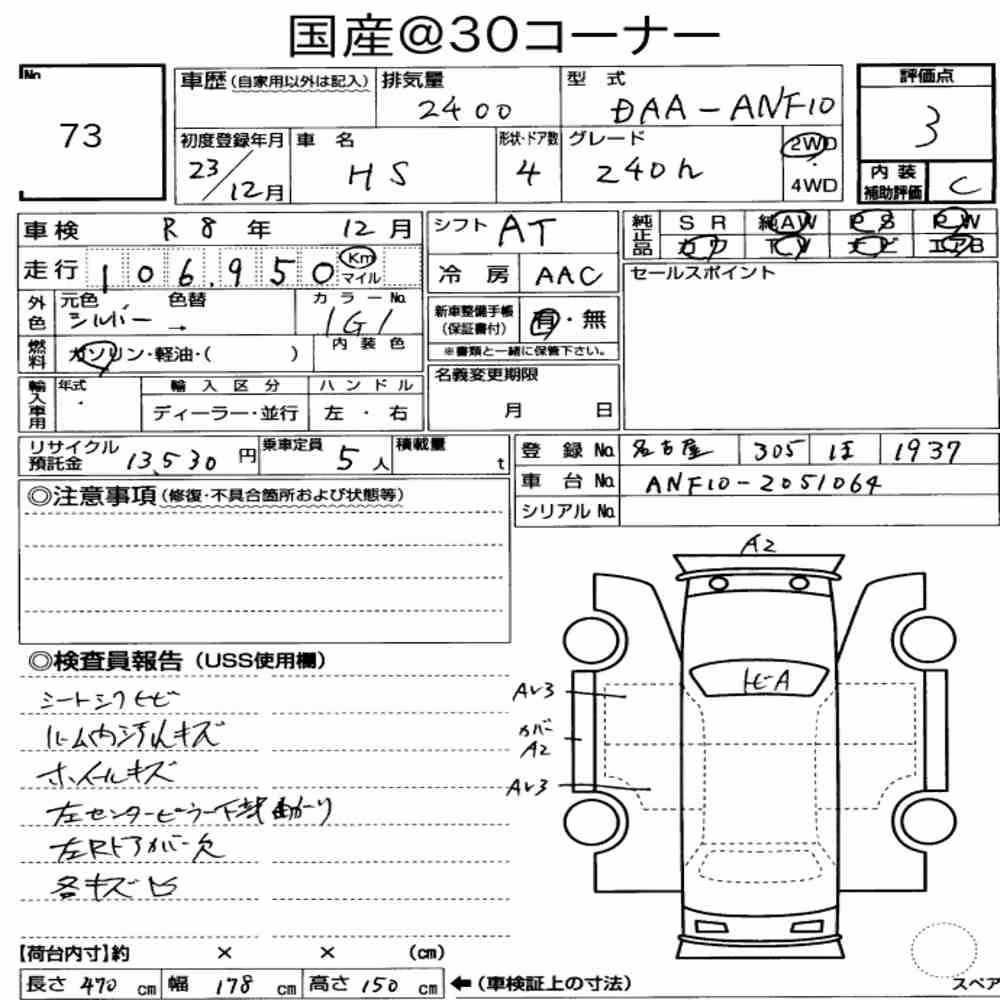 国産@30コーナー
No.
73
車歴(自家用以外は記入)
排気量
2400
型 式
DAA-ANF10
評価点
3
初度登録年月
23/12月
車 名
HS
形状・ドア数
4
グレード
240h
2WD
・
4WD
内 装
補助評価
C
車検 R8年 12月
シフト AT
純正品
SR 純AW PS PW
カワ TV ナビ エアB
走行 106,950 Km マイル
冷 房 AAC
セールスポイント
外色
元色 シルバー
色替 →
カラーNo.
1G1
新車整備手帳
(保証書付)
有・無
※書類と一緒に保管下さい。
燃料
ガソリン・軽油・( )
内装色
名義変更期限
月 日
輸入車用
年式
・
輸入区分
ディーラー・並行
ハンドル
左・右
リサイクル
預託金
13,530円
乗車定員
5人
積載量
t
登 録 No. 名古屋 305 ほ 1937
車 台 No. ANF10-2051064
シリアル No.
◎注意事項(修復・不具合箇所および状態等)
A2
◎検査員報告(USS使用欄)
シートシワヒビ
ルーム内汚れキズ
ホイールキズ
左センターピラー下部曲がり
左Rドアカバー欠
各キズ凹
トビA
AU3
カバー
A2
AU3
【荷台内寸】約 × × (cm)
長さ 470 cm 幅 178 cm 高さ 150 cm ←(車検証上の寸法)
スペア